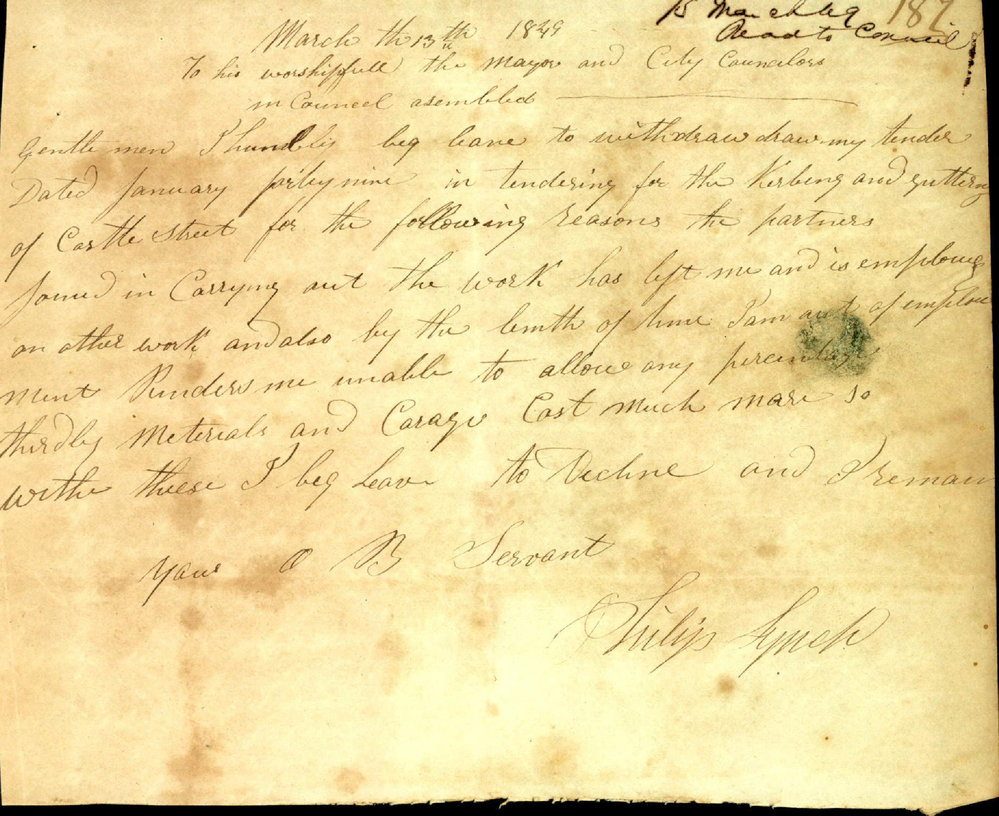 15 March 49
Read to Council
187
March th 13th 1849
To his worshipfull the Mayor and City Councelors
in Council asembled
Gentlemen I humbly beg leave to withdraw draw my tender
Dated January fortynine in tendering for the Kerbing and guttering
of Castle Street for the following reasons the partners
Joined in Carrying out the work has left me and is employed
on other work and also by the lenth of time I am out of employ
ment Renders me unable to allow any percentage
thirdly Meterials and Carage Cost much more so
withe these I beg Leave to Decline and I remain
your O B Servant
Philip Lynch